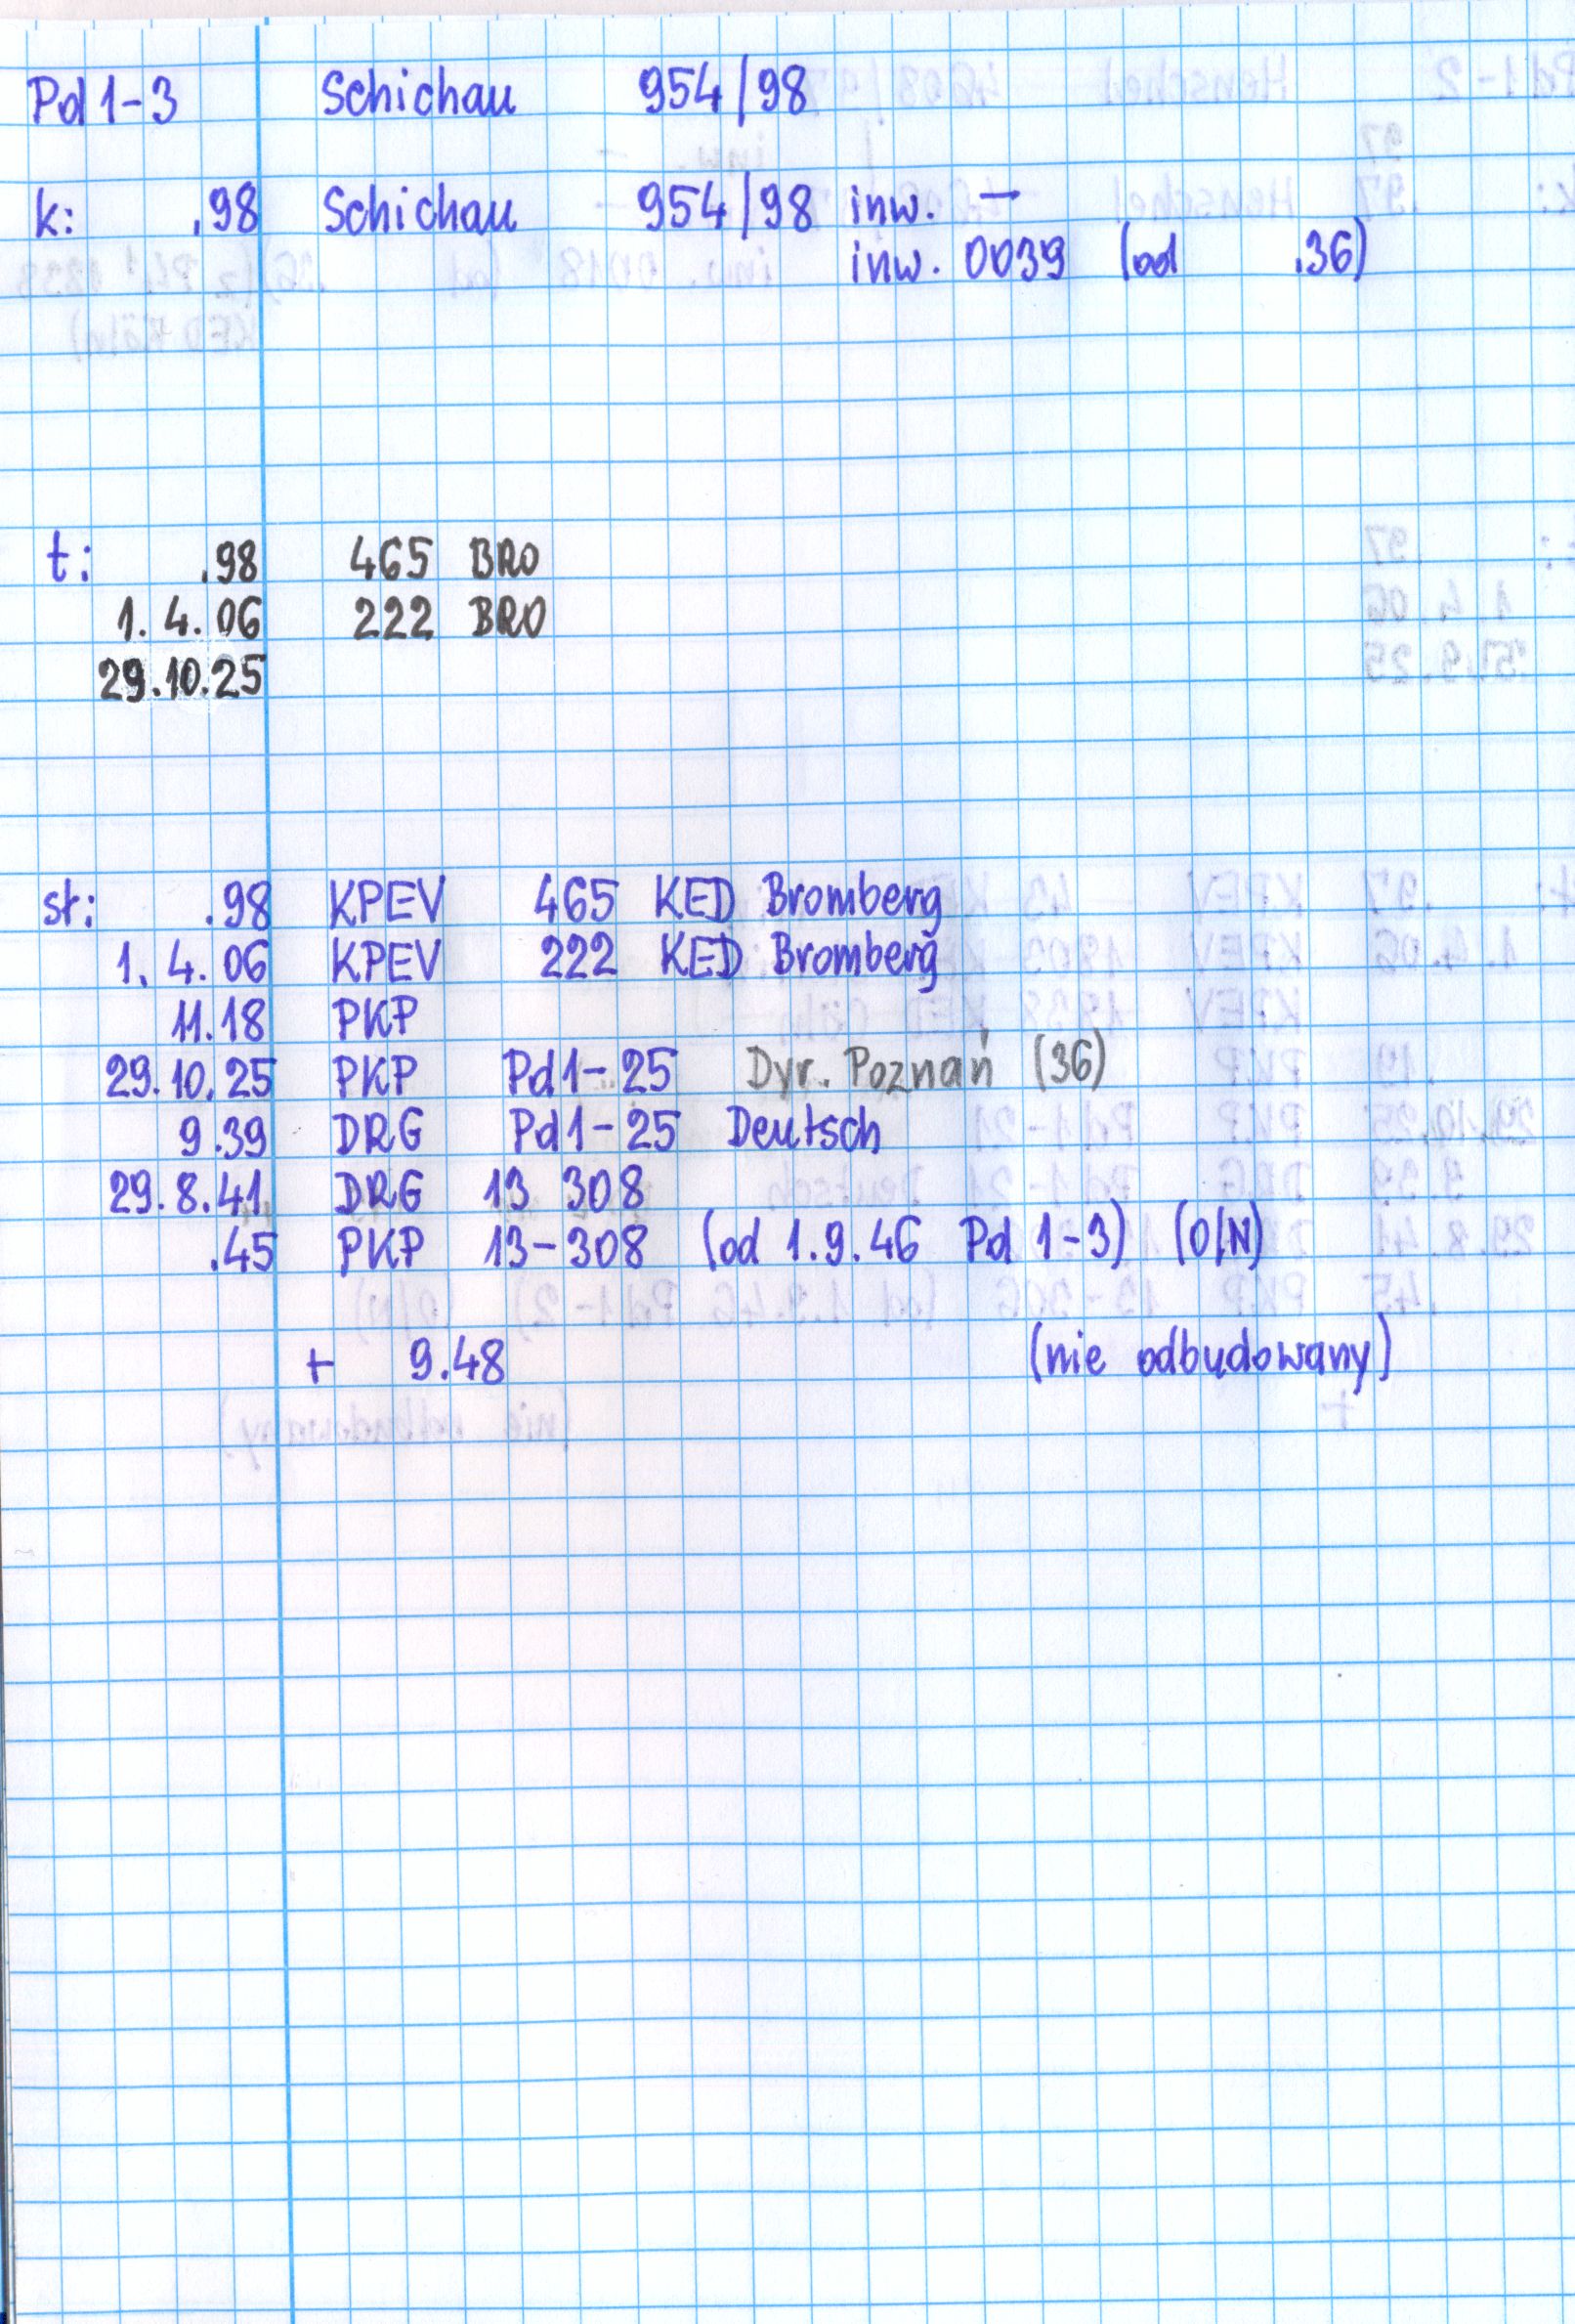 Pd 1-3 Schichau 954/98
k: .98 Schichau 954/98 inw. —
inw. 0039 (od .36)
t: .98 465 BRO
1. 4. 06 222 BRO
29.10.25
st: .98 KPEV 465 KED Bromberg
1. 4. 06 KPEV 222 KED Bromberg
11.18 PKP
29.10.25 PKP Pd1-25 Dyr. Poznań (36)
9.39 DRG Pd1-25 Deutsch
29.8.41 DRG 13 308
.45 PKP 13-308 (od 1.9.46 Pd 1-3) (O/N)
+ 9.48 (nie odbudowany)